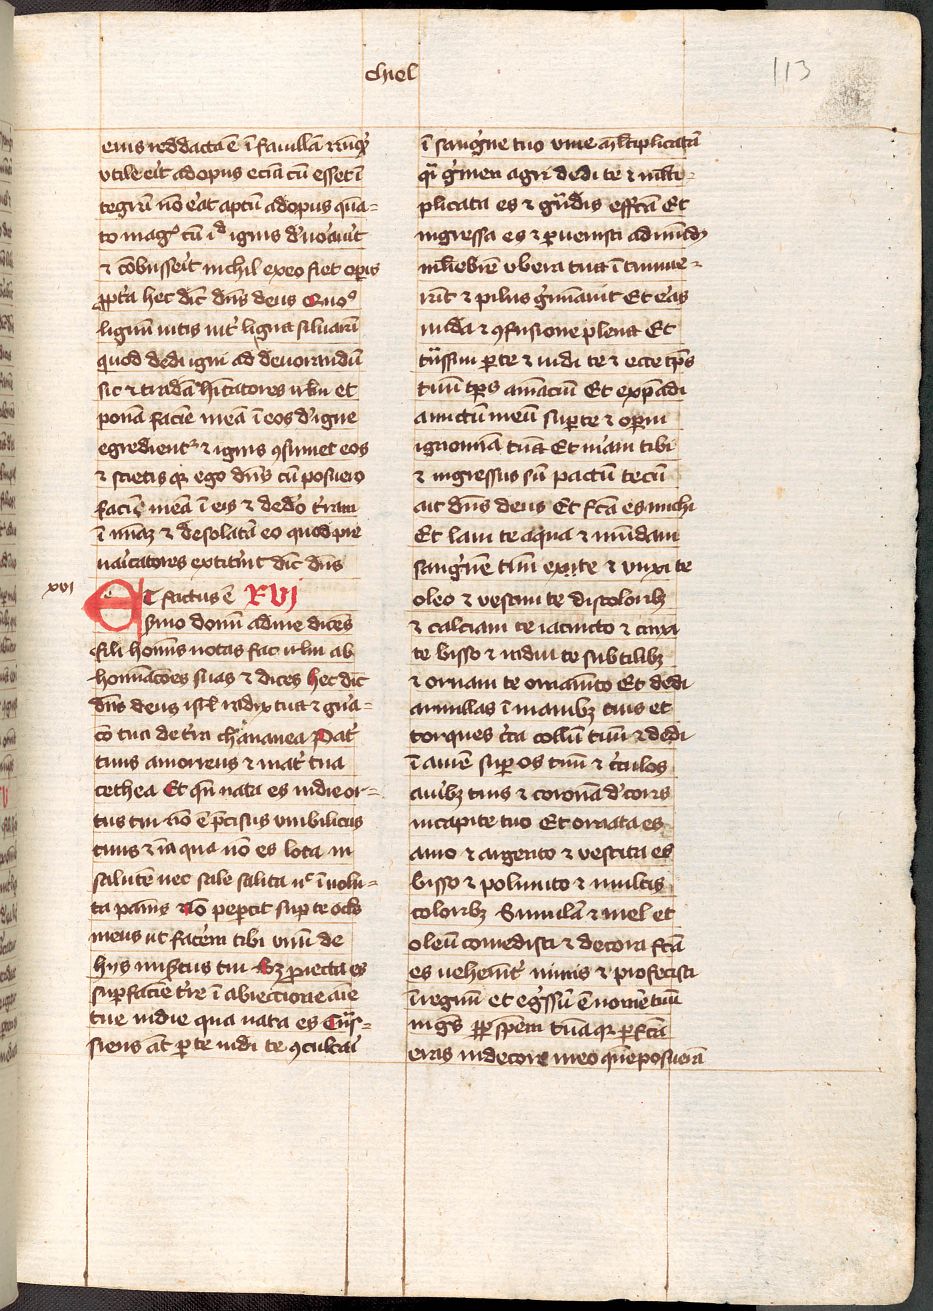 chiel
113
eius reddacta ē ī fauillā nūq̄
vtile erit ad opus eciā cū esset ī
tegrū nō erat aptū ad opus quā=
to magꝰ cū id ignis d'uorauit
⁊ cōbusserit nichil ex eo fiet operis
ꝓpt'a hec dic̄ dn̄s deus Quoº
lignū vitis int' ligna siluarū
quod dedi igni ad deuorandū
sic ⁊ tradā hītatores irlm̄ et
ponā faciē meā ī eos d'igne
egredient̄ ⁊ ignis ꝯsumet eos
⁊ scietis qꝛ ego dn̄s cū posuero
faciē meā ī eis ⁊ dedero t'ram
ī inuiaꝫ ⁊ desolatā eo quod pre
uaricatores extiterint dic̄ dn̄s
xvi
ET factus ē XVI
s'mo domī ad me dicēs
fili homīs notas fac irlm̄ ab
hominacōes suas ⁊ dices hec dic̄
dn̄s deus isrl̄ radix tua ⁊ gn̄a=
cō tua de t'ra chananea Pat'
tuus amorreus ⁊ mat' tua
cethea Et qn̄ nata es in die or=
tus tui nō ē p̄cisus vmbilicus
tuus ⁊ in aqua nō es lota in
salutē nec sale salita nc̄ īuolu=
ta pannis Nō pepercit sup te ocl's
meus ut facerem tibi vnū de
hys misertus tui Sꝫ ꝓiecta es
sup faciē t're ī abiectione aīe
tue in die qua nata es Trāſ=
siens at̄ per te vidi te ꝯculcari
ī sanguine tuo viue mltiplicatā
q̄i germen agri dedi te ⁊ mlti=
plicata es ⁊ grādis effctā Et
ingressa es ⁊ peruenisti ad mūdū
mliebrē vbera tua ītumue=
rūt ⁊ pilus germīauit Et eras
nuda ⁊ ꝯfusione plena Et
trāsiui per te ⁊ uidi te ⁊ ecce tp̄s
tuū tp̄s amāciū Et expādi
amictū meū super te ⁊ operui
ignomīā tuā Et iuraui tibi
⁊ ingressus sū pactū tecū
ait dn̄s deus Et fctā es michi
Et laui te aqua ⁊ mūdaui
sanguinē tuū ex te ⁊ vnxi te
oleo ⁊ vestiui te discoloribꝫ
⁊ calciaui te iacincto ⁊ cinxi
te bisso ⁊ indui te subtilibꝫ
⁊ ornaui te ornamēto Et dedi
armillas ī manibꝫ tuis et
torques c'ca collū tuū ⁊ dedi
ī aurē super os tuū ⁊ c'culos
auribꝫ tuis ⁊ coronā d'coris
in capite tuo Et ornata es
auro ⁊ argento ⁊ vestita es
bisso ⁊ polimito ⁊ multis
coloribꝫ Similā ⁊ mel et
oleū comedisti ⁊ decora fctā
es vehement' nimis ⁊ profecisti
ī regnū et egressū ē nomē tuū
in gētes ꝓpter spēm tuā qꝛ perfctā
eras in decore meo quē posuerā